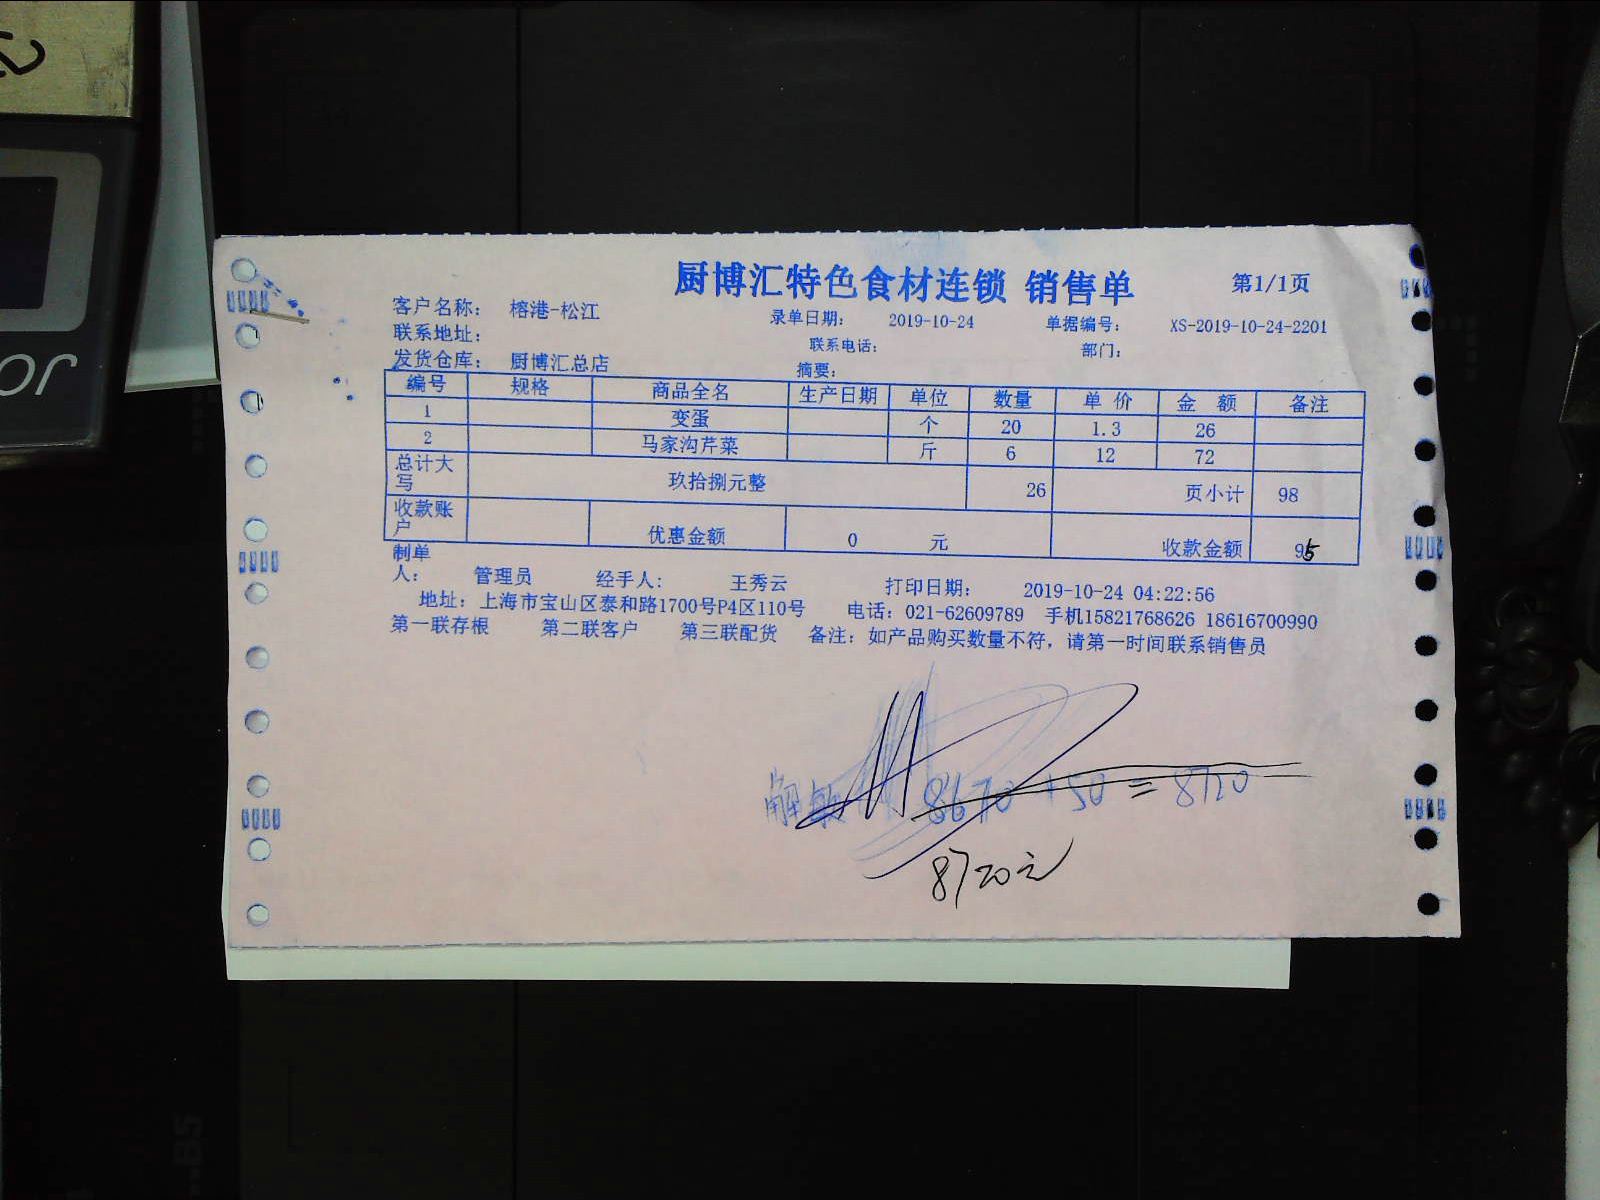 厨博汇特色食材连锁 销售单
第1/1页
客户名称： 榕港-松江 录单日期： 2019-10-24 单据编号： XS-2019-10-24-2201
联系地址： 联系电话： 部门：
发货仓库： 厨博汇总店 摘要：
编号 规格 商品全名 生产日期 单位 数量 单 价 金 额 备注
1 变蛋 个 20 1.3 26
2 马家沟芹菜 斤 6 12 72
总计大写 玖拾捌元整 26 页小计 98
收款账户 优惠金额 0 元 收款金额 95
制单人： 管理员 经手人: 王秀云 打印日期： 2019-10-24 04:22:56
地址：上海市宝山区泰和路1700号P4区110号 电话：021-62609789 手机15821768626 18616700990
第一联存根 第二联客户 第三联配货 备注：如产品购买数量不符，请第一时间联系销售员
8670 +50 = 8720
8720元
B5
or